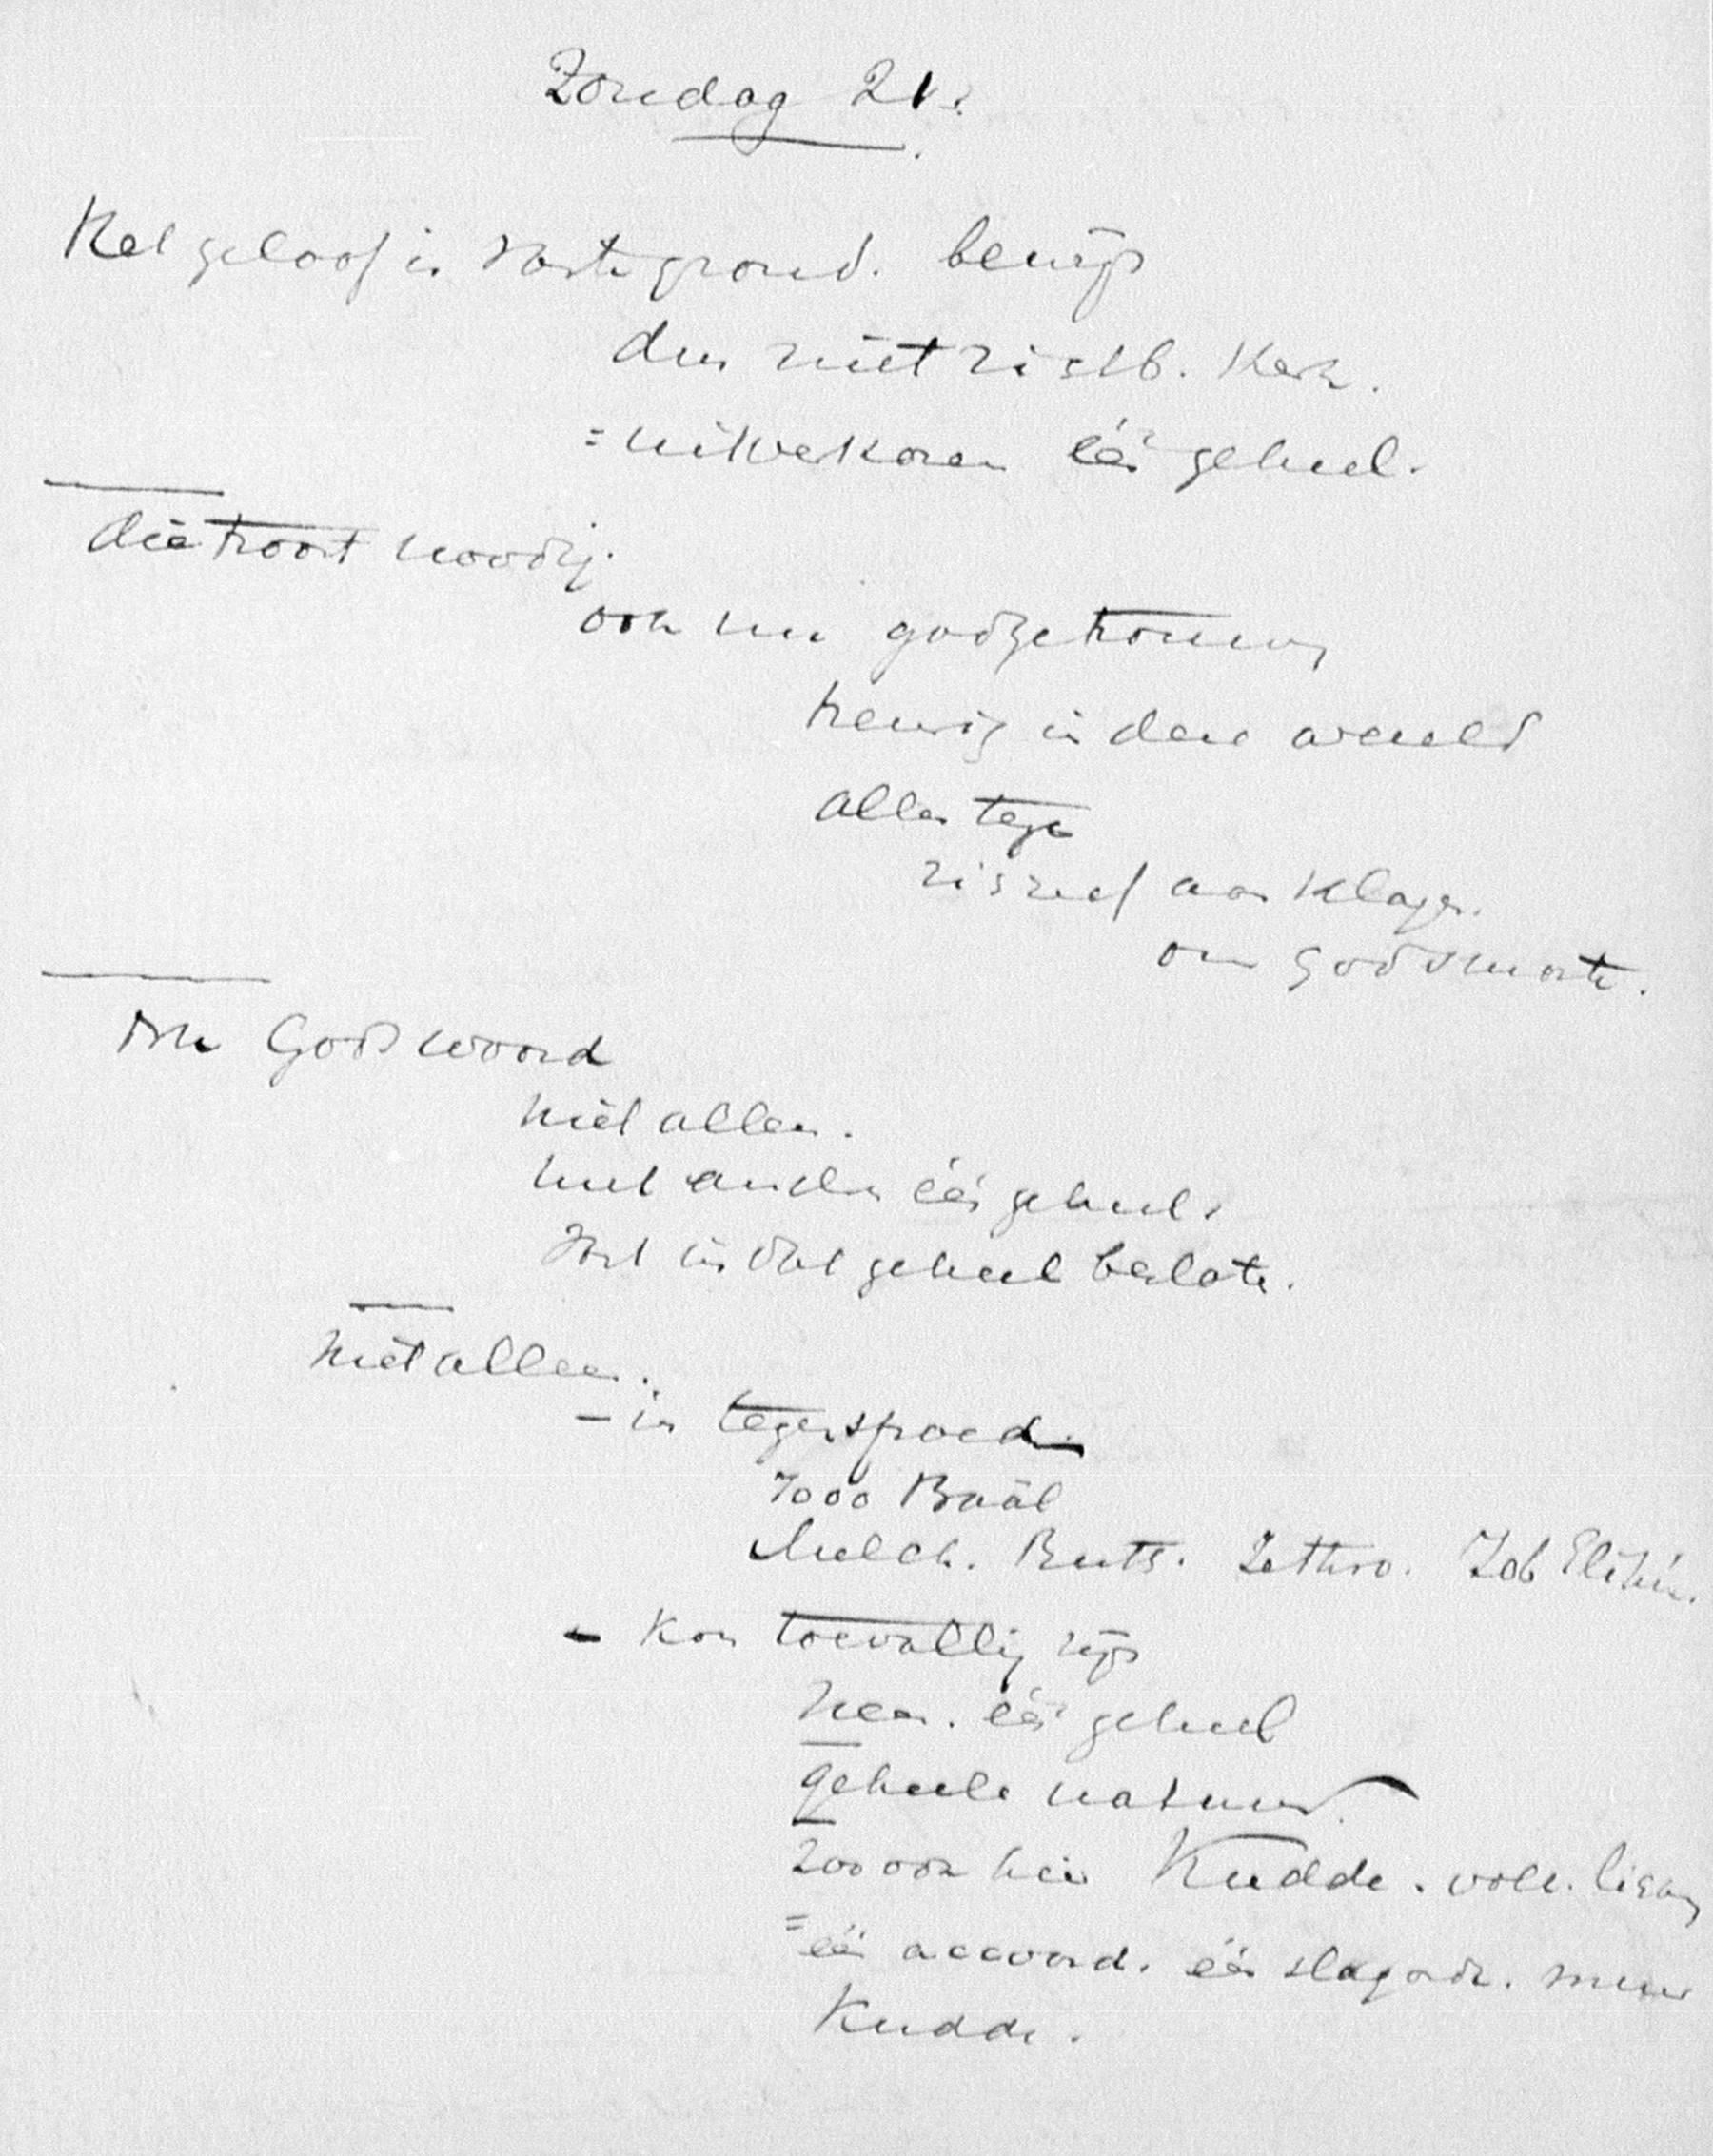 Zondag 21.
Het geloof is vaste grond. bewijs
der niet zichtb. Kerk.
= uitverkoren één geheel.
die troost noodig.
ook nu godsgetrouwen
treurig in deze wereld
alles tegen
zich zelf aanklagen.
om Gods
Gods woord
niet alleen.
met andere één geheel.
vast in dat geheel besloten.
niet alleen.
- in tegenspoed
7000 Baäl
Melch. Ruth. Jethro. Job Elihu.
- Kon toevallig zijn
neen. één geheel
geheele natuur.
Zoo ook hier Kudde. volk. lichaam
= één accoord. één slagorde. muur
Kudde.